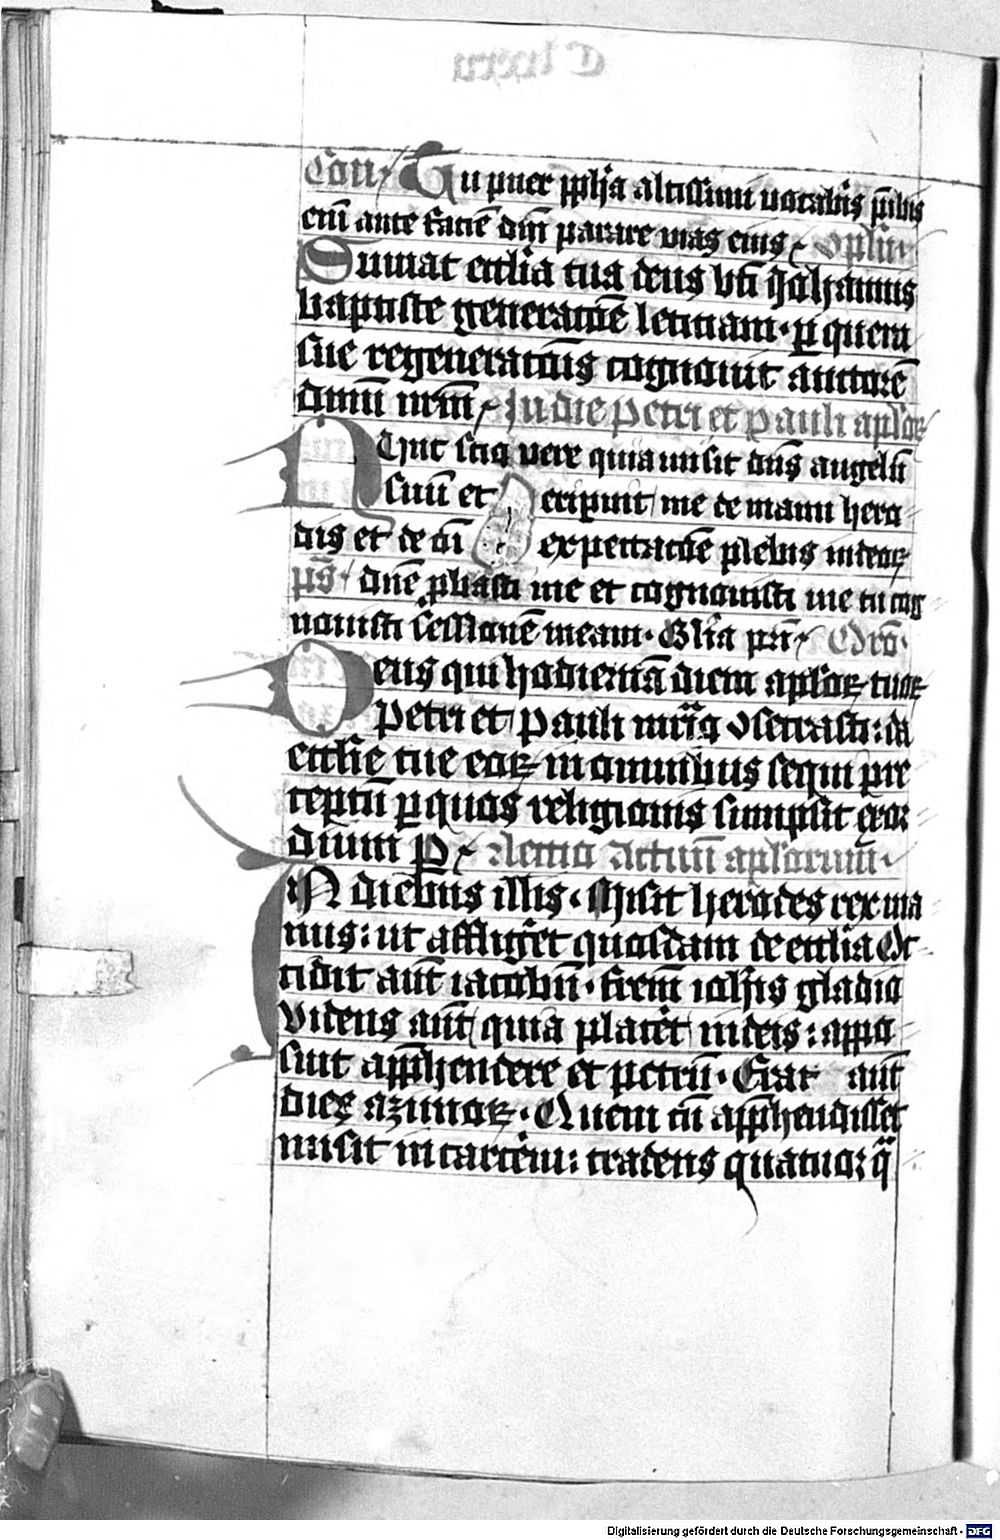 Con Tu puer ppha altissimi vocabis pibis
eni ante facie dni parare vias eius Oplm
Sumat ecclia tua deus bti Johannis
baptiste generatōe leticiam · p quem
sue regeneratōis cognouit auctorē
dnm nrm In die petri et pauli aplor
Nunc scio vere quia misit dns angelū
suū et eripuit me de manu hero
dis et de oī expectatōe plebis iudeor
ps dne pbasti me et cognouisti me tu cog
nouisti sessionē meam · Glia pri Oro
Deus qui hodiernā diem aplor tuor
Petri et pauli mrio osecrasti : da
ecclie tue eor in omnibus sequi pre
ceptū p quos religionis sumpsit exor
dium P Lectio Actuū aplorum ·
IN diebus illis · Misit herodes rex ma
nus : ut affligeret quosdam de ecclia Oc
cidit aut iacobū · frem iohis gladio
Videns aut quia placet iudeis : appo
suit apphendere et petrū · Erat aut
dies azimor · Quem cū apphendisset
misit in carcerem : tradens quatuor q
Digitalisierung gefördert durch die Deutsche Forschungsgemeinschaft - DFG